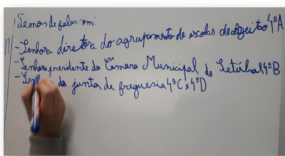 Temos de falar com:
- Senhora diretora do agrupamento de escolas de Azeitão 4ºA
- Senhor presidente da Câmara Municipal de Setúbal 4ºB
da junta de freguesia 4ºC e 4ºD